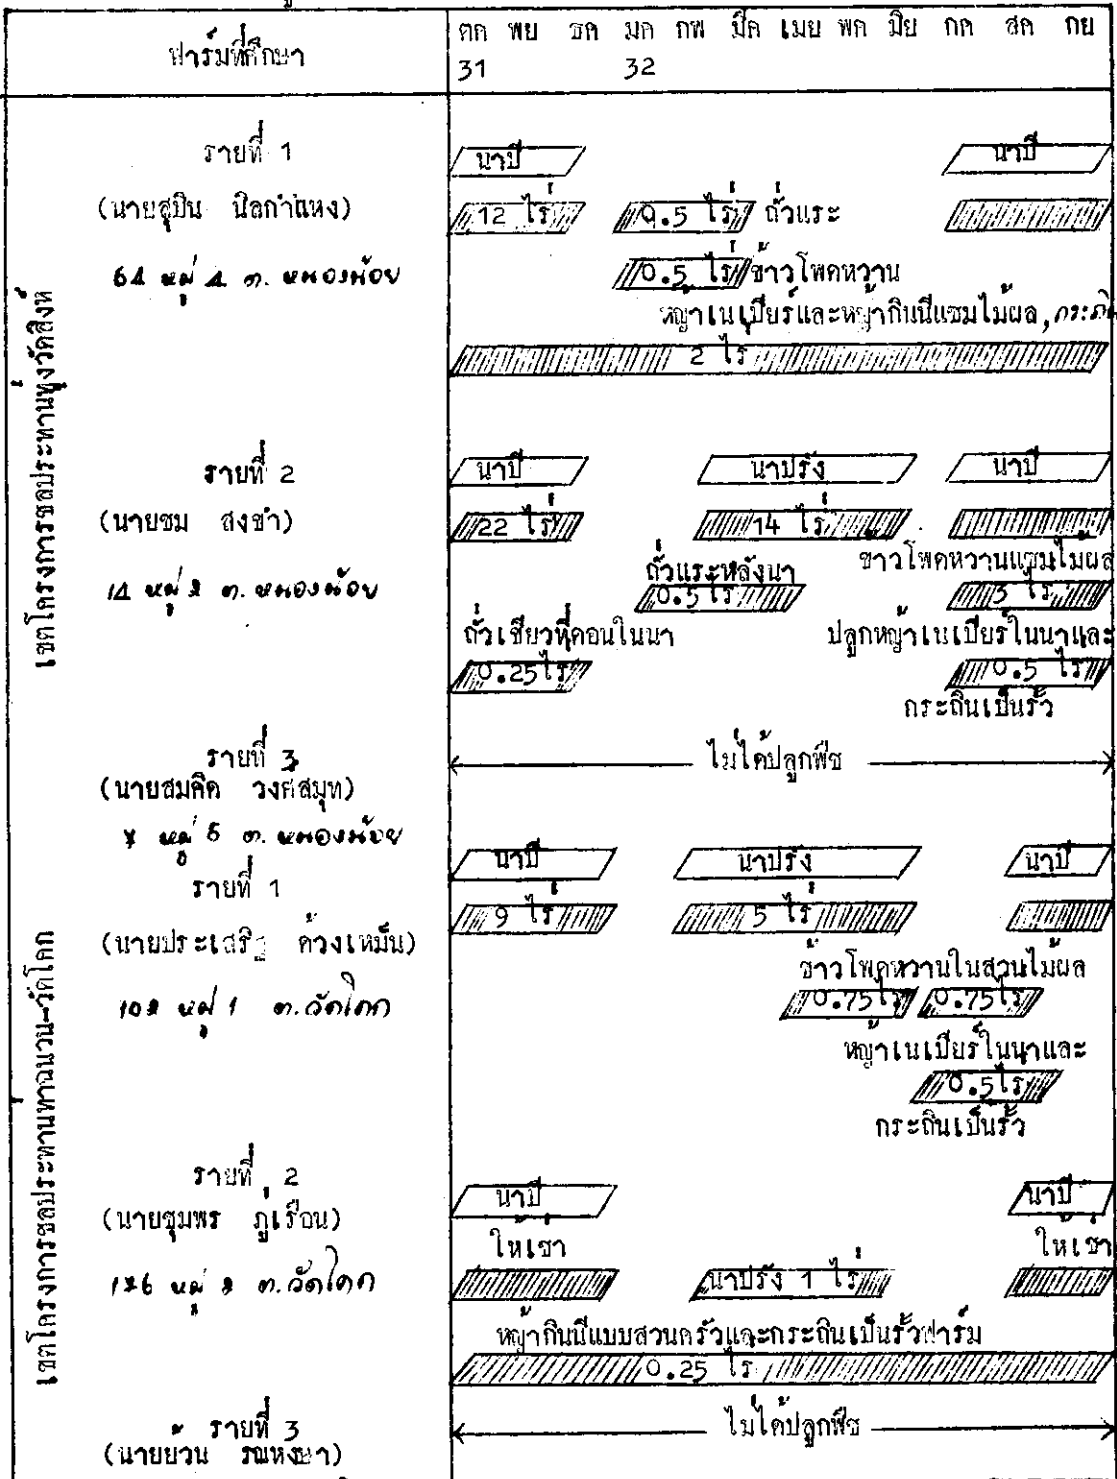 ฟาร์มที่ศึกษา
ตค พย ธค มค กพ มีค เมย พค มิย กค สค กย
31 32
เขตโครงการชลประทานทุ่งวัดสิงห์
รายที่ 1
(นายสุบิน นิลกำแหง)
64 หมู่ 4 ต. หนองน้อย
นาปี นาปี
12 ไร่ 0.5 ไร่ ถั่วแระ
0.5 ไร่ ข้าวโพดหวาน
หญ้าเนเปียร์และหญ้ากินนีแซมไม้ผล,
2 ไร่
รายที่ 2
(นายชม สงขำ)
14 หมู่ 2 ต. หนองน้อย
นาปี นาปรัง นาปี
22 ไร่ 14 ไร่
ถั่วแระหลังนา ข้าวโพดหวานแซมไม้ผล
0.5 ไร่ 3 ไร่
ถั่วเขียวที่ดอนในนา ปลูกหญ้าเนเปียร์ในนาและ
0.25 ไร่ 0.5 ไร่
กระถินเป็นรั้ว
รายที่ 3
(นายสมคิด วงศ์สมุท)
หมู่ 5 ต. หนองน้อย
ไม่ได้ปลูกพืช
เขตโครงการชลประทานท่าฉนวน-วัดโคก
รายที่ 1
(นายประเสริฐ ด้วงเหมือน)
102 หมู่ 1 ต. วัดโคก
นาปี นาปรัง นาปี
9 ไร่ 5 ไร่
ข้าวโพดหวานในสวนไม้ผล
0.75 ไร่ 0.75 ไร่
หญ้าเนเปียร์ในนาและ
0.5 ไร่
กระถินเป็นรั้ว
รายที่ 2
(นายชุมพร ภู่เรือน)
126 หมู่ 2 ต. วัดโคก
นาปี นาปี
ให้เช่า ให้เช่า
นาปรัง 1 ไร่
หญ้ากินนีแบบสวนครัวและกระถินเป็นรั้วฟาร์ม
0.25 ไร่
รายที่ 3
(นายยวน รณหงษา)
ไม่ได้ปลูกพืช